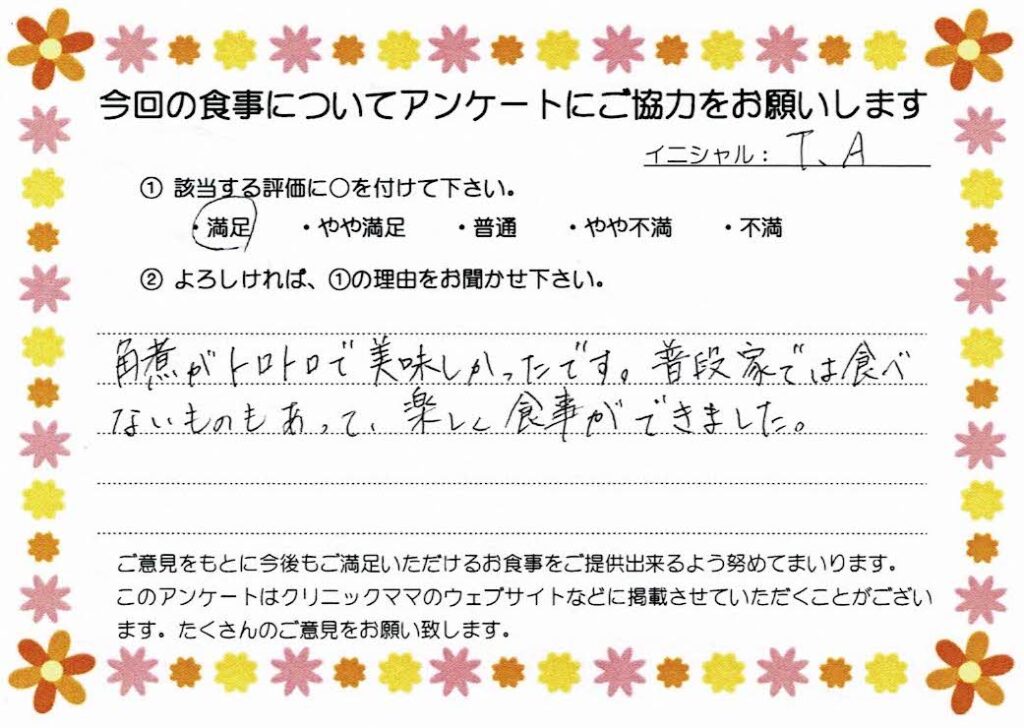 今回の食事についてアンケートにご協力をお願いします
イニシャル： T、A
① 該当する評価に○を付けて下さい。
・満足 ・やや満足 ・普通 ・やや不満 ・不満
② よろしければ、①の理由をお聞かせ下さい。
角煮がトロトロで美味しかったです。普段家では食べ
ないものもあって、楽しく食事ができました。
ご意見をもとに今後もご満足いただけるお食事をご提供出来るよう努めてまいります。
このアンケートはクリニックママのウェブサイトなどに掲載させていただくことがござい
ます。たくさんのご意見をお願い致します。